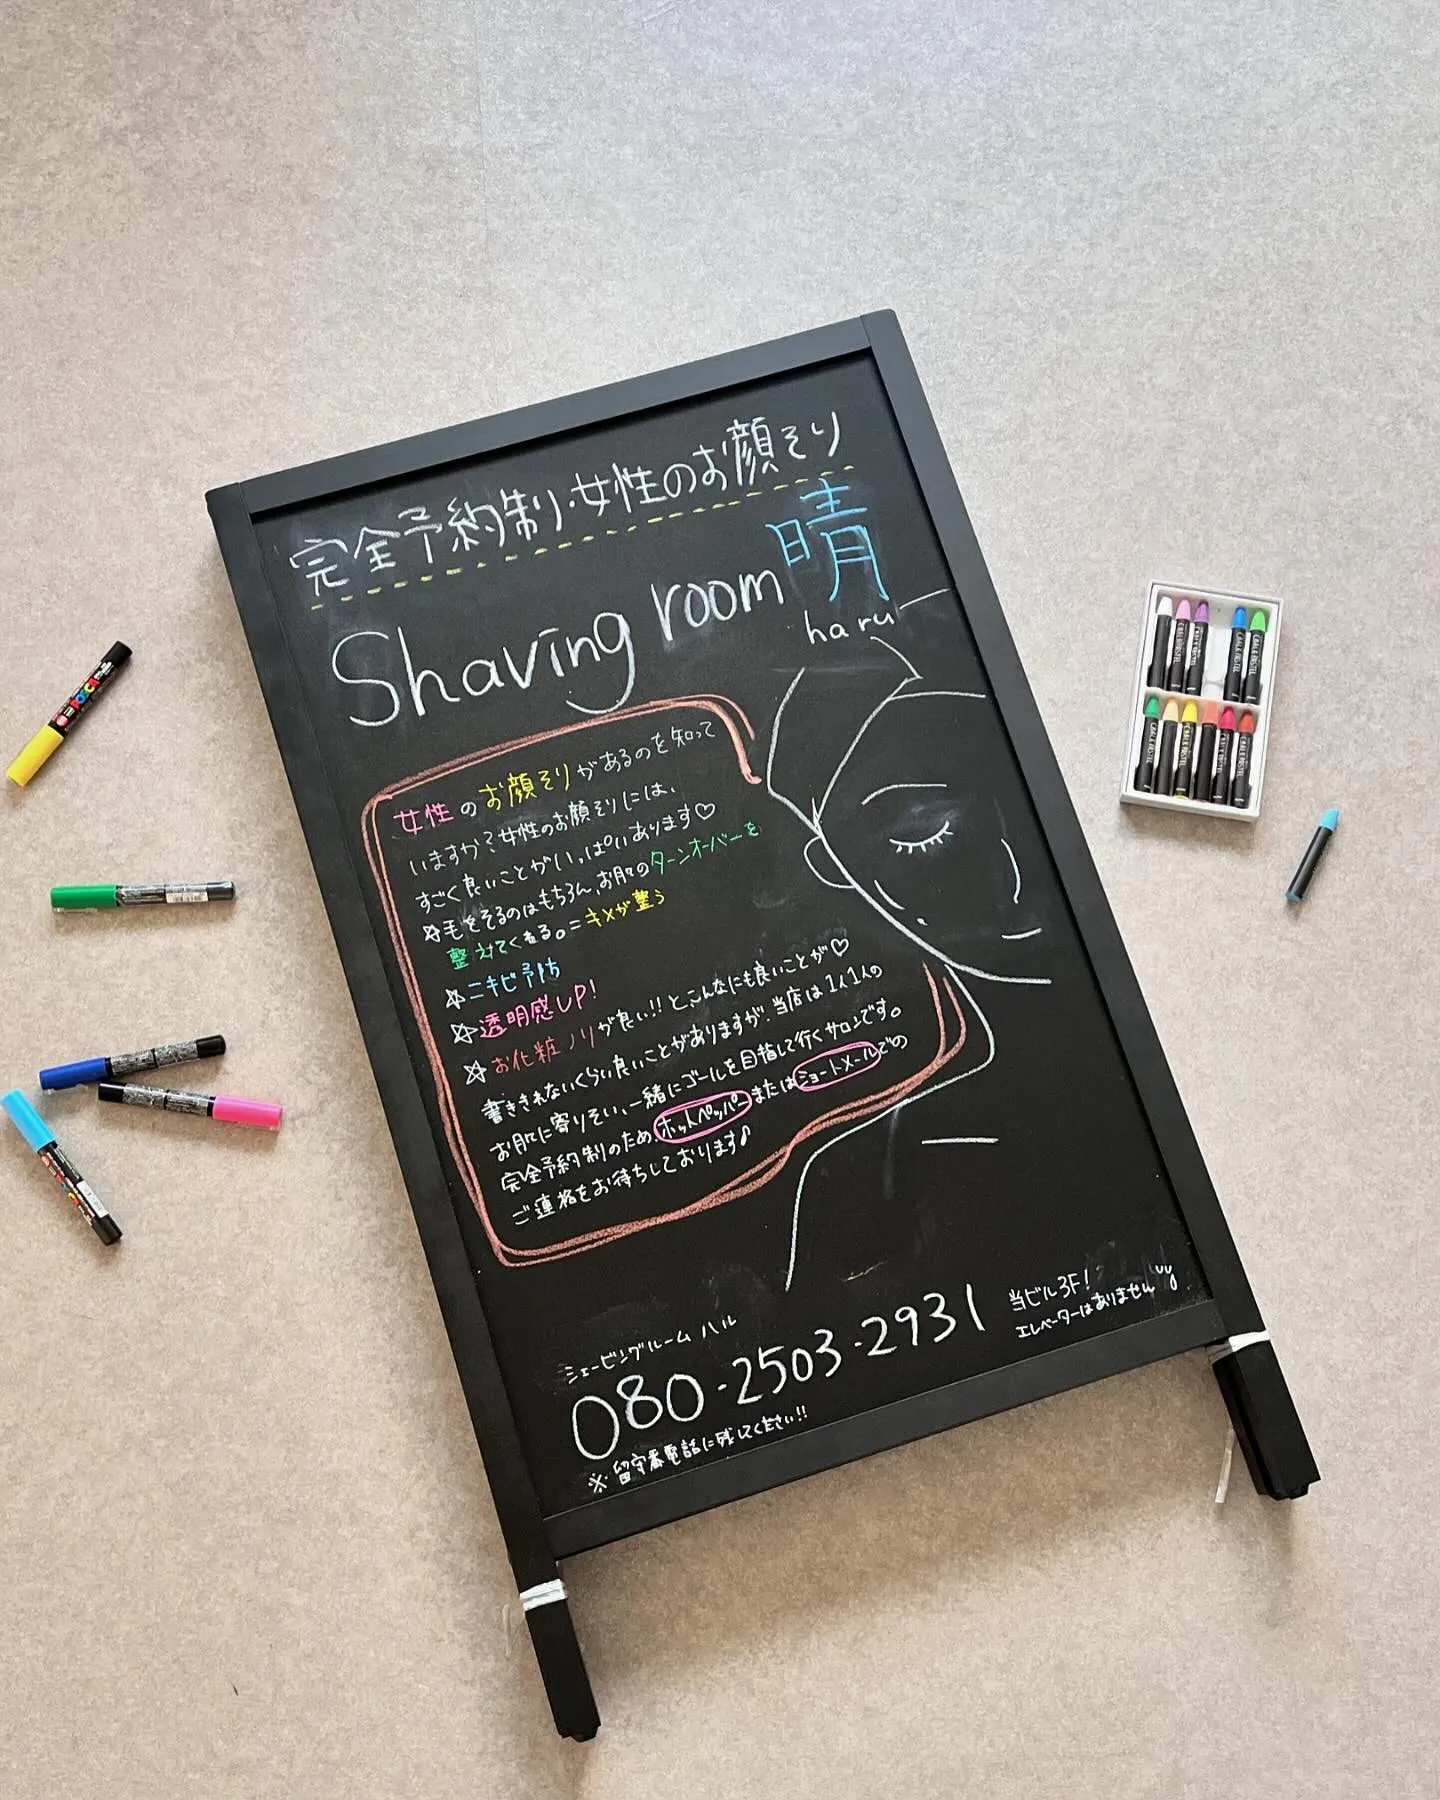 完全予約制・女性のお顔そり
Shaving room 晴
haru
女性のお顔そりがあるのを知って
いますか？女性のお顔そりには、
すごく良いことがいっぱいあります♡
☆毛をそるのはもちろん、お肌のターンオーバーを
整えてくれる。=キメが整う
☆ニキビ予防
☆透明感UP!
☆お化粧ノリが良い!!と、こんなにも良いことが♡
書ききれないくらい良いことがありますが、当店は1人1人の
お肌に寄りそい、一緒にゴールを目指して行くサロンです。
完全予約制のため、ホットペッパーまたはショートメールでの
ご連絡をお待ちしております♪
シェービングルーム ハル
080-2503-2931
※留守番電話に残してください!!
当ビル3F!
エレベーターはありません
POSCA
CHALK PASTEL